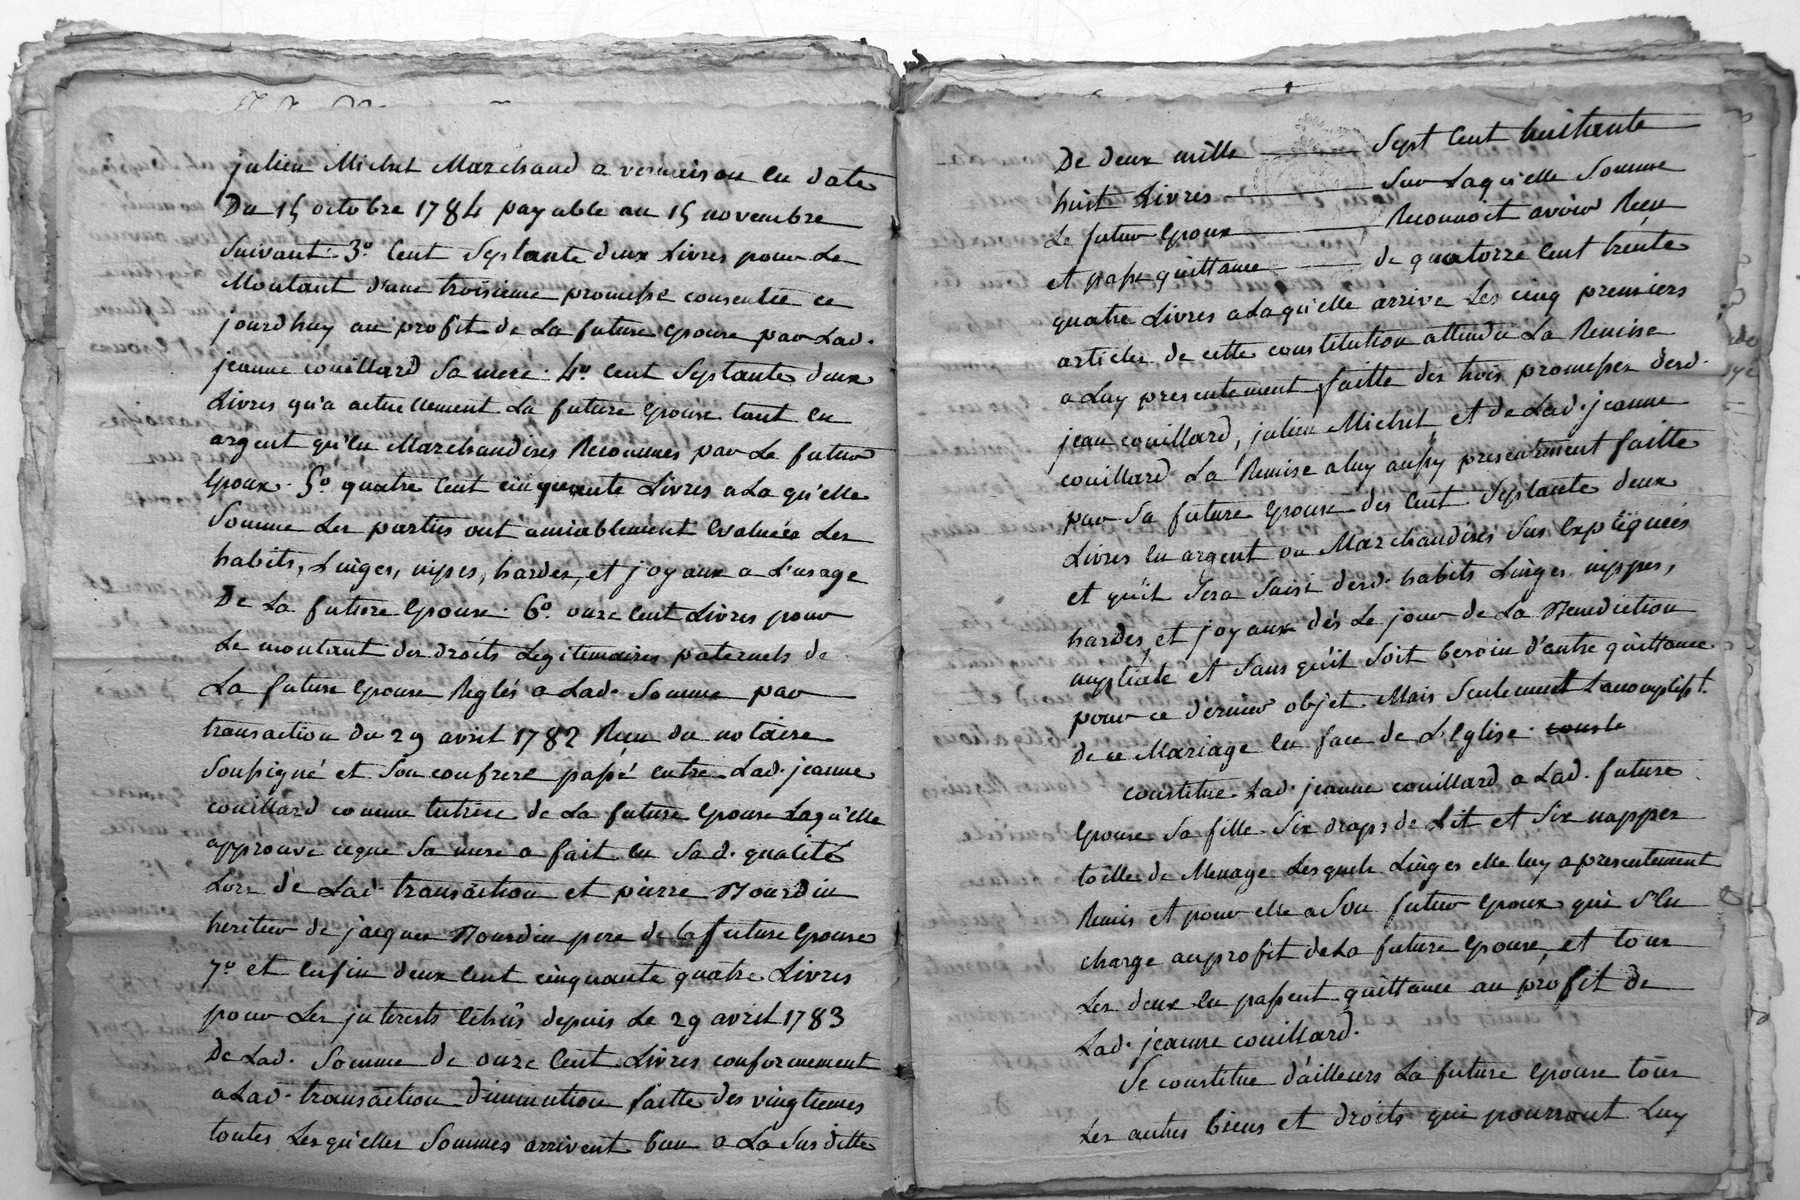 julien Michel Marchand a vernaison en date
Du 15 octobre 1784 payable au 15 novembre
Suivant. 3.º Cent Septante deux Livres pour Le
Montant d'une troisieme promesse consentie ce
jourdhuy au profit de La future Epouse par Lad.
jeanne couillard Sa mere. 4.º Cent Septante deux
Livres qu'a actuellement La future Epouse tant En
argent qu'en Marchandises Reconnues par Le futur
Epoux. 5.º quatre Cent cinquante Livres a La qu'elle
Somme Les parties ont amiablement Evaluées Les
habits, Linges, nipes, hardes, et joyaux a L'usage
De La future Epouse. 6.º onze Cent Livres pour
Le montant des droits Legitimaires paternels de
La future Epouse Reglés a Lad. Somme par
transaction du 29 avril 1782 Recu du notaire
Soussigné et Son confrere passé entre Lad. jeanne
couillard comme tutrice de La future Epouse Laqu'elle
approuve ceque Sa mere a fait En Sad. qualité
Lors de Lad. transaction et pierre Bourdin
heritier de jacques Bourdin pere de la future Epouse
7.º et Enfin deux Cent cinquante quatre Livres
pour Les jnterests Echûs depuis Le 29 avril 1783
De Lad. Somme de onze Cent Livres conformement
a Lad. transaction Diminution faitte des vingtiemes
toutes Lesqu'elles Sommes arrivent bien a La Susditte
De deux mille Sept Cent huitante
huit Livres Sur Laqu'elle Somme
Le futur Epoux Reconnoit avoir Recu
et passe quittance de quatorze Cent trente
quatre Livres a Laqu'elle arrive Les cinq premiers
articles de cette constitution attendu La Remise
a Luy presentement faitte des trois promesses desd.
jean couillard, julien Michel, et de Lad. jeanne
couillard La Remise a luy aussy presentement faitte
par Sa future Epouse des Cent Septante deux
Livres En argent ou Marchandises Sus Expliquées
et qu'il Sera Saisi desd. habits Linges nippes,
hardes, et joyaux dès Le jour de La Benediction
nuptiale et Sans qu'il Soit besoin d'autre quittance
pour ce dernier objet Mais Seulement L'accomplisst.
De ce Mariage En face de L'Eglise.
constitue Lad. jeanne couillard a Lad. future
Epouse Sa fille Six draps de Lit et Six nappes
toille de Menage Lesquels Linges elle luy a presentement
Remis et pour elle a Son futur Epoux qui S'en
charge au profit de La future Epouse, et tous
Les deux En passent quittance au profit de
Lad. jeanne couillard.
Se constitue d'ailleurs La future Epouse tous
Les autres biens et droits qui pourront Luy